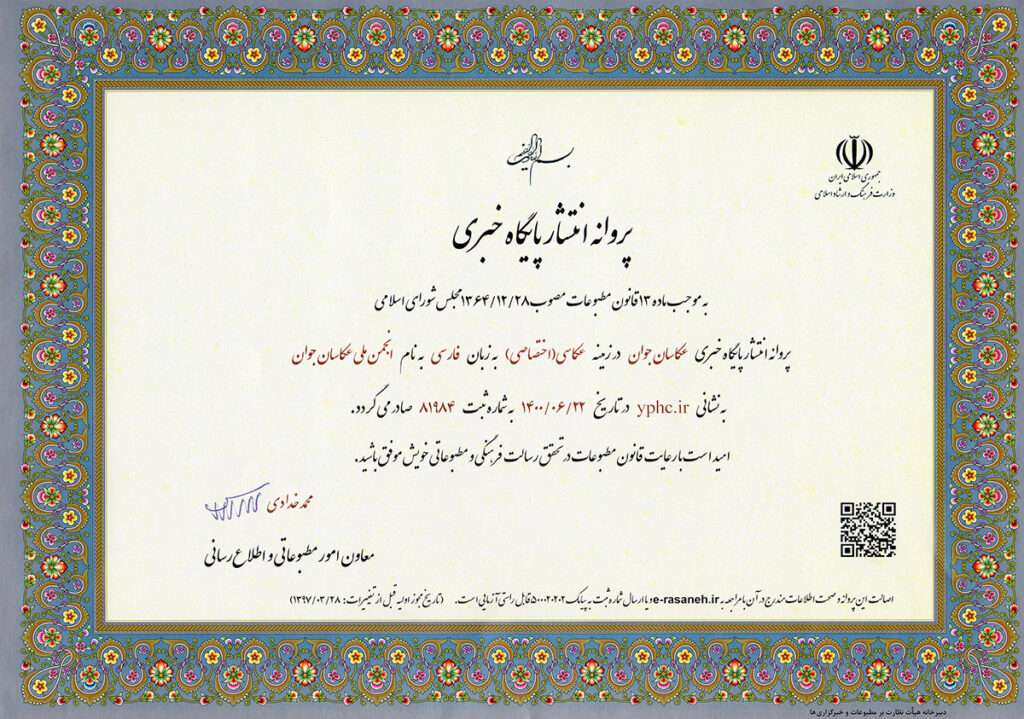 بسم الله الرحمن الرحیم
جمهوری اسلامی ایران
وزارت فرهنگ و ارشاد اسلامی
پروانه انتشار پایگاه خبری
به موجب ماده ۱۳ قانون مطبوعات مصوب ۱۳۶۴/۱۲/۲۸ مجلس شورای اسلامی
پروانه انتشار پایگاه خبری عکاسان جوان در زمینه عکاسی(اختصاصی) به زبان فارسی به نام انجمن ملی عکاسان جوان
به نشانی yphc.ir در تاریخ ۱۴۰۰/۰۶/۲۲ به شماره ثبت ۸۱۹۸۴ صادر می گردد.
امید است با رعایت قانون مطبوعات در تحقق رسالت فرهنگی و مطبوعاتی خویش موفق باشید.
محمد خدادی
معاون امور مطبوعاتی و اطلاع رسانی
اصالت این پروانه و صحت اطلاعات مندرج در آن با مراجعه به e-rasaneh.ir و یا ارسال شماره ثبت به پیامک ۵۰۰۰۲۰۲۰۲ قابل راستی آزمایی است. (تاریخ مجوز اولیه قبل از تغییرات: ۱۳۹۷/۰۳/۲۸)
دبیرخانه هیأت نظارت بر مطبوعات و خبرگزاری‌ها